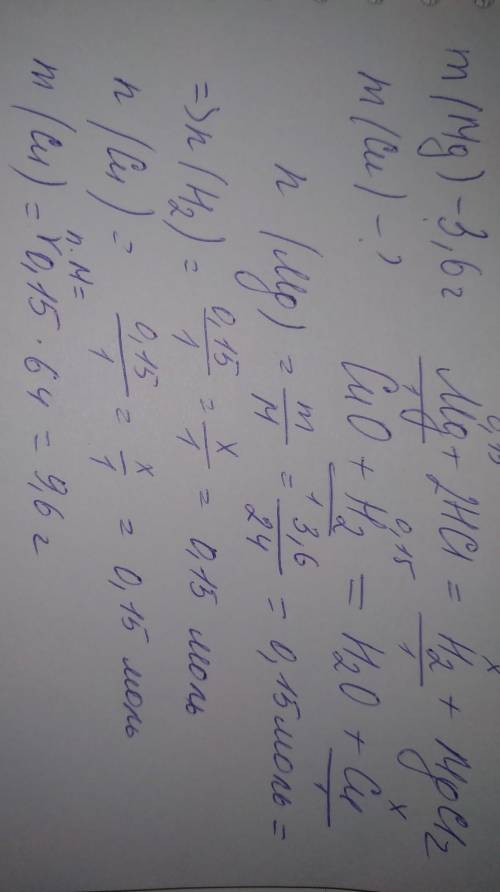 m(Mg) - 3,6г
m(Cu) - ?
0,15 x
Mg + 2HCl = H2 + MgCl2
1 1
0,15 x
CuO + H2 = H2O + Cu
1 1
n(Mg) = m/M = 3,6/24 = 0,15 моль =
=> n(H2) = 0,15/1 = x/1 = 0,15 моль
n(Cu) = 0,15/1 = x/1 = 0,15 моль
n·M =
m(Cu) = 0,15 · 64 = 9,6г